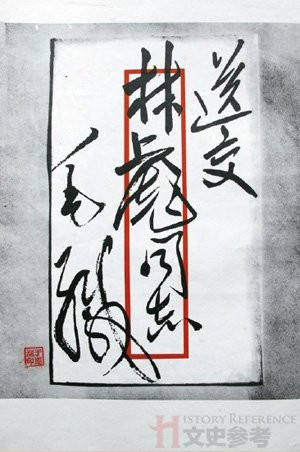 送交
林彪同志
毛緘
HISTORY REFERENCE
文史参考